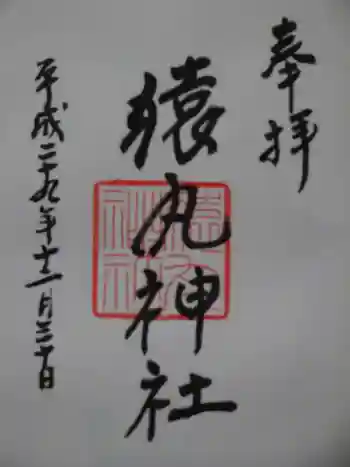 奉拝
猿丸神社
平成二十九年十二月三十日